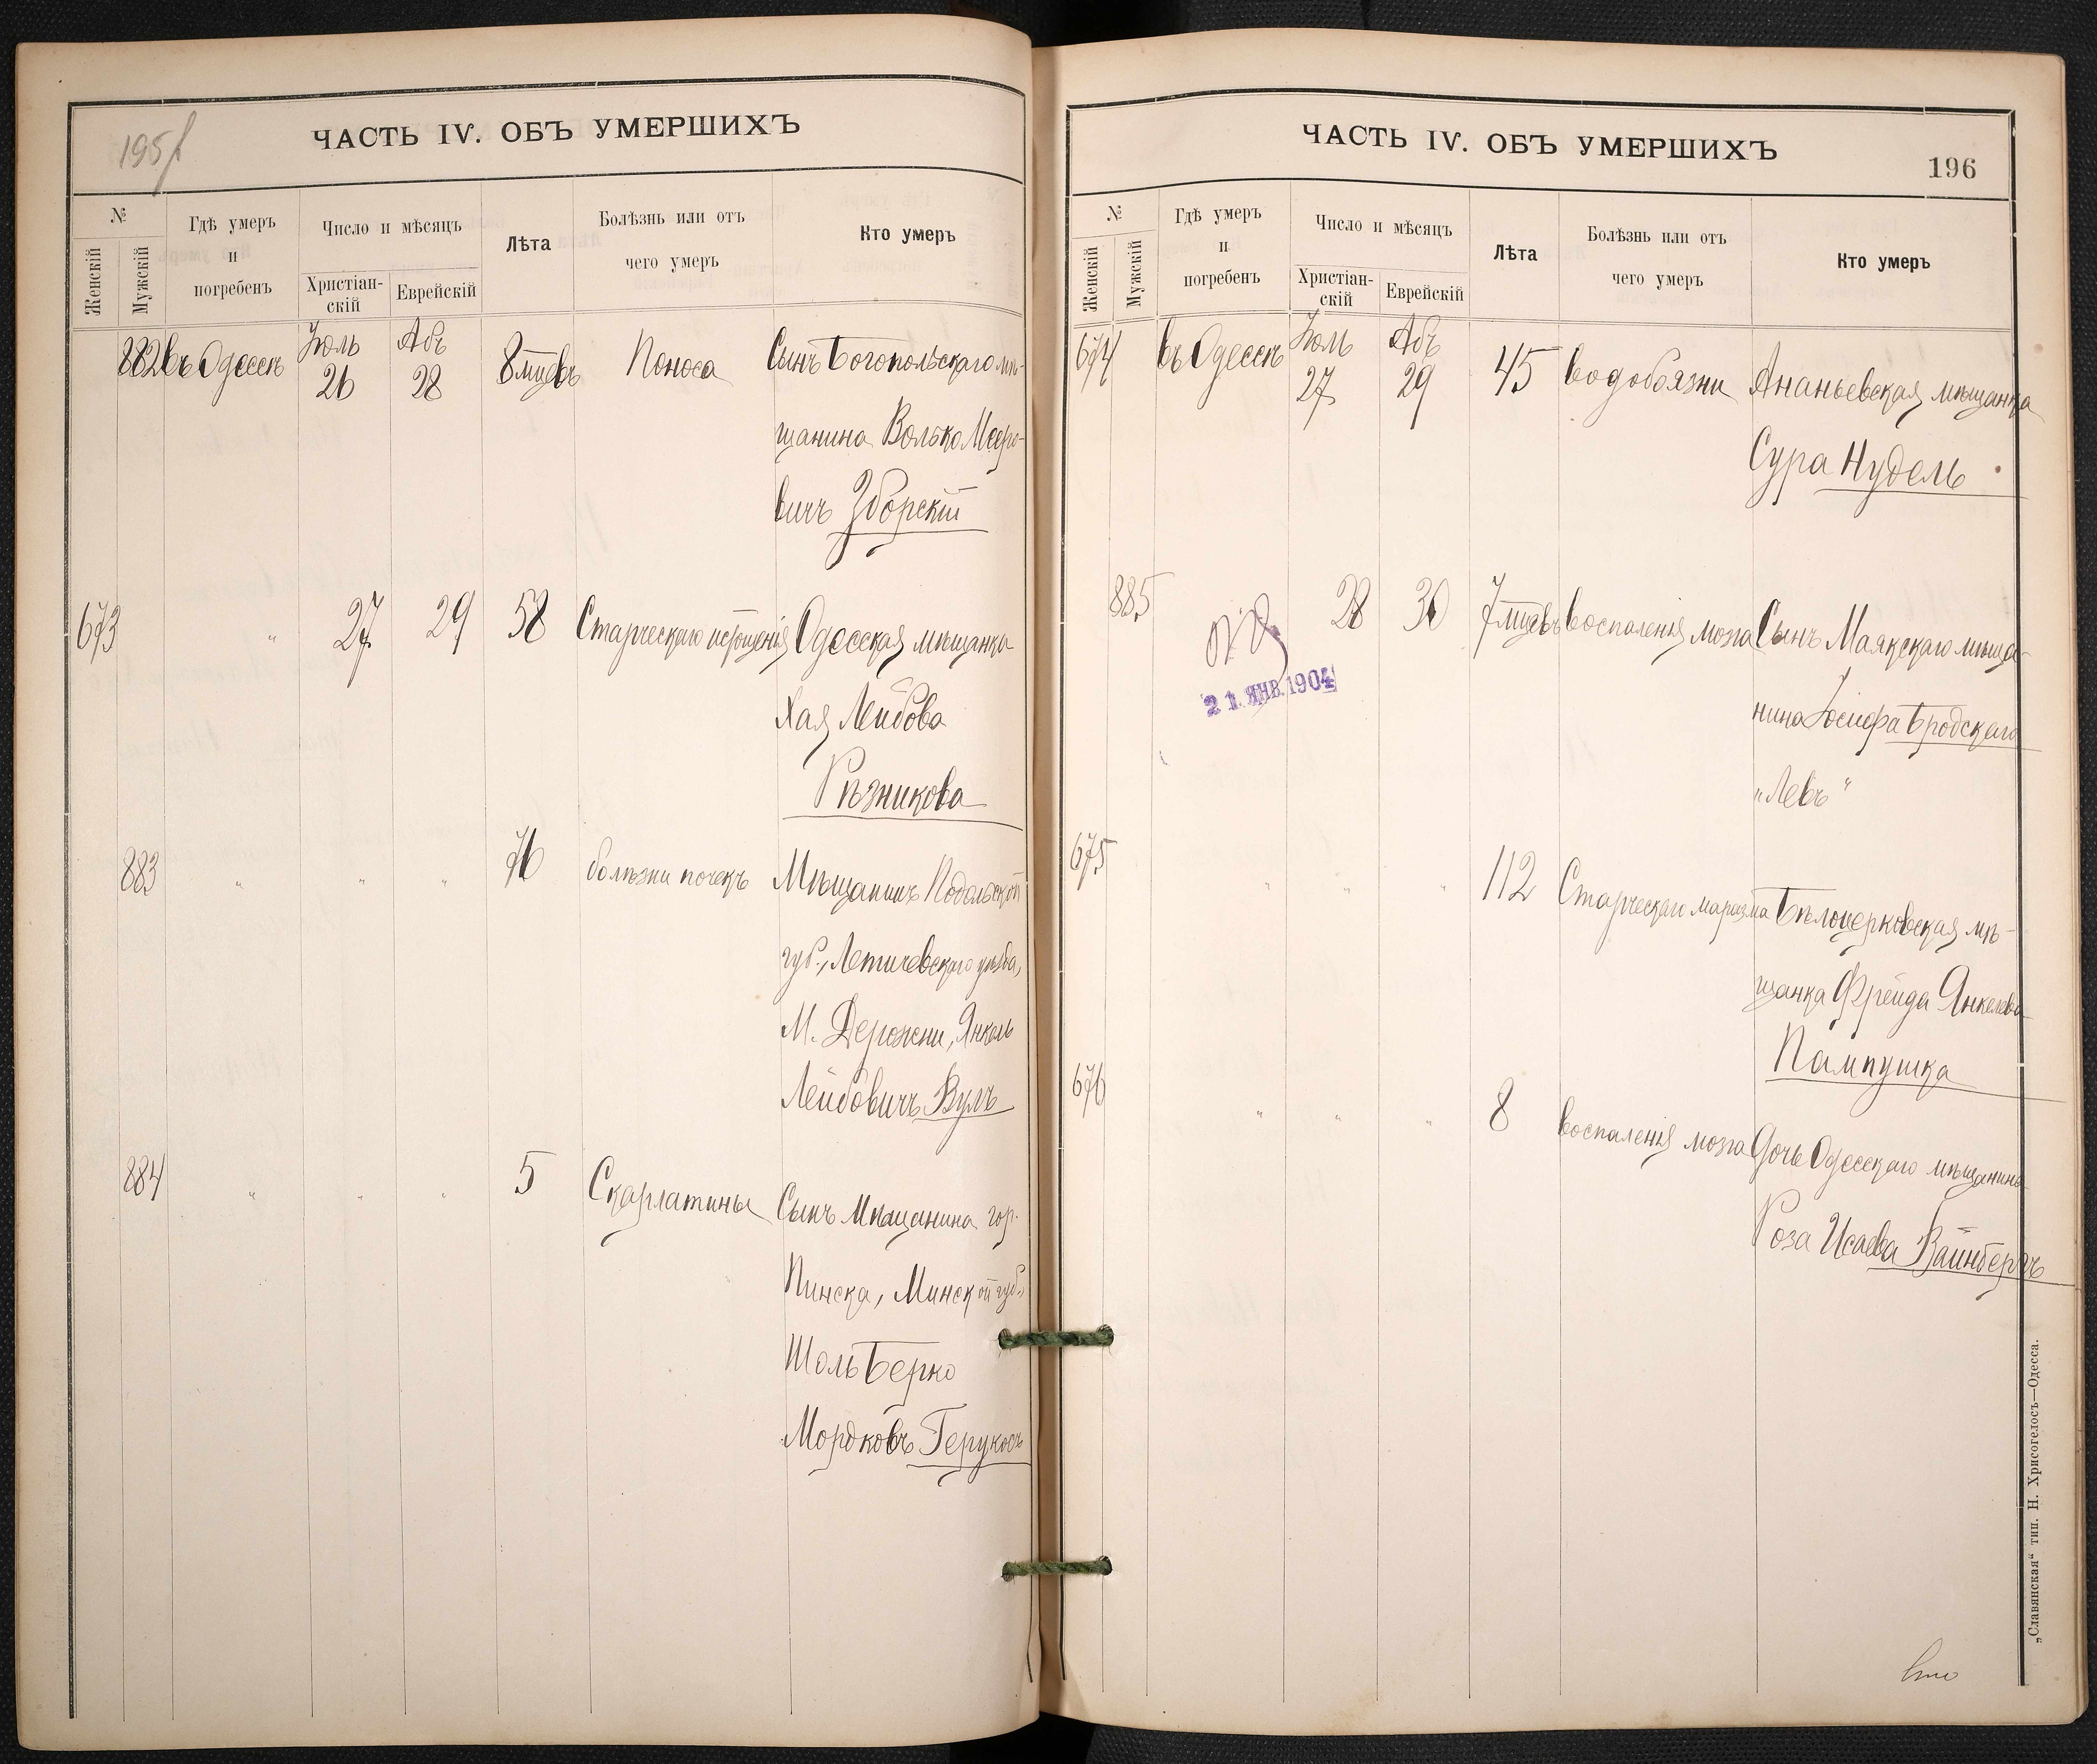 195
ЧАСТЬ IV. ОБЪ УМЕРШИХЪ
№
Женскій
Мужскій
Гдѣ умеръ
и
погребенъ
Число и мѣсяцъ
Христіан-
скій
Еврейскій
Лѣта
Болѣзнь или отъ
чего умеръ
Кто умеръ
882 въ Одессѣ Іюль 26 Абъ 28 8 мцевъ Поноса Сынъ Богопольскаго мѣ-
щанина Волько Мееро-
вичъ Зборскій
673 " 27 29 58 Старческаго истощенія Одесская мѣщанка
Хая Лейбова
Рѣзникова
883 " " " 76 болѣзни почекъ Мѣщанинъ Подольской
губ., Летичевскаго уѣзда,
М. Деражни, Янкель
Лейбовичъ Вулъ
884 " " " 5 Скарлатины Сынъ Мѣщанина гор.
Пинска, Минской губ.
Шоль Берко
Мордковъ
ЧАСТЬ IV. ОБЪ УМЕРШИХЪ
196
№
Женскій
Мужскій
Гдѣ умеръ
и
погребенъ
Число и мѣсяцъ
Христіан-
скій
Еврейскій
Лѣта
Болѣзнь или отъ
чего умеръ
Кто умеръ
674 въ Одессѣ Іюль 27 Абъ 29 45 водобоязни Ананьевская мѣщанка
Сура Нудель
885 28 30 7 мцевъ воспаленія мозга Сынъ Маякскаго мѣща-
нина Іосифа Бродскаго
"Левъ"
21 ЯНВ. 1904
675 " " " 112 Старческаго маразма Бѣлоцерковская мѣ-
щанка Фрейда Янкелева
Пампушка
676 " " " 8 воспаленія мозга Дочь Одесскаго мѣщанина
Роза Исаева Вайнбергъ
„Славянская“ тип. Н. Хрисогелосъ—Одесса.